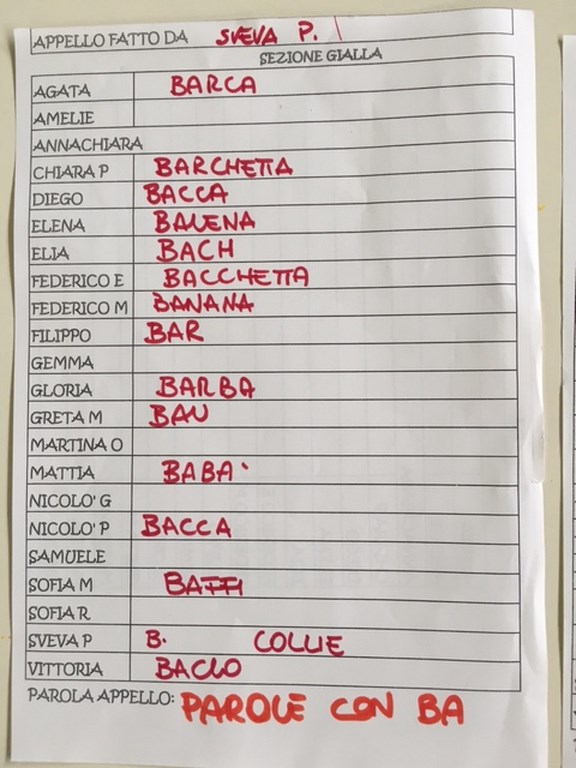 APPELLO FATTO DA SVEVA P.
SEZIONE GIALLA
AGATA BARCA
AMELIE
ANNACHIARA
CHIARA P BARCHETTA
DIEGO BACCA
ELENA BALENA
ELIA BACH
FEDERICO E BACCHETTA
FEDERICO M BANANA
FILIPPO BAR
GEMMA
GLORIA BARBA
GRETA M BAU
MARTINA O
MATTIA BABA'
NICOLO' G
NICOLO' P BACCA
SAMUELE
SOFIA M BAFFI
SOFIA R
SVEVA P B. COLLIE
VITTORIA BACIO
PAROLA APPELLO: PAROLE CON BA